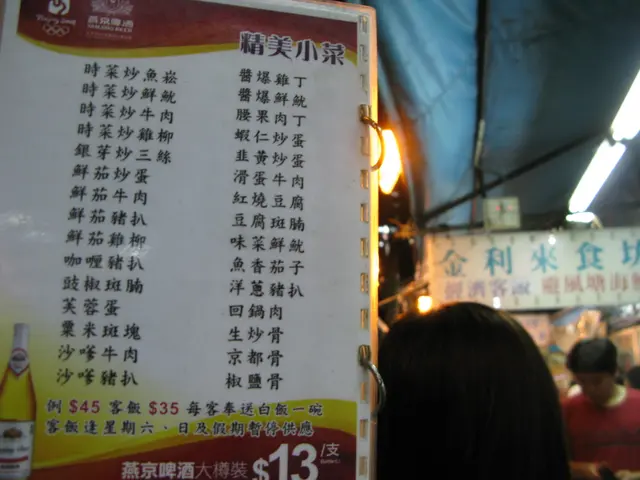 Beijing
燕京啤酒
精美小菜
時菜炒魚崧
時菜炒鮮魷
時菜炒牛肉
時菜炒雞柳
銀芽炒三絲
鮮茄炒蛋
鮮茄牛肉
鮮茄豬扒
鮮茄雞柳
咖喱豬扒
豉椒斑腩
芙蓉蛋
粟米斑塊
沙嗲牛肉
沙嗲豬扒
醬爆雞丁
醬爆鮮魷
腰果肉丁
蝦仁炒蛋
韭黃炒蛋
滑蛋牛肉
紅燒豆腐
豆腐斑腩
味菜鮮魷
魚香茄子
洋蔥豬扒
回鍋肉
生炒骨
京都骨
椒鹽骨
例 $45 客飯 $35 每客奉送白飯一碗
客飯逢星期六、日及假期暫停供應
燕京啤酒大樽裝 $13/支
金利來食坊
經濟客飯 避風塘海鮮